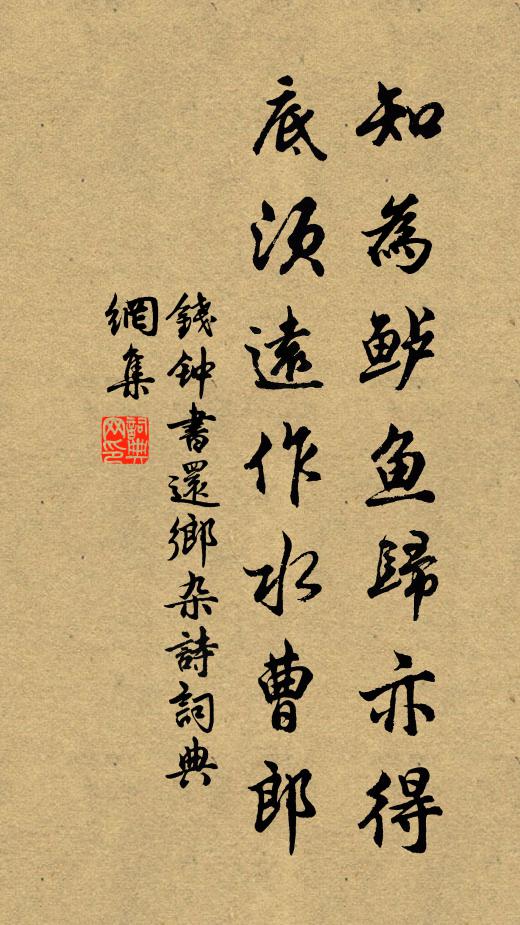 知為鲈魚歸亦得
底須遠作水曹郎
錢钟書還鄉杂詩詞典
網集
詞典網印